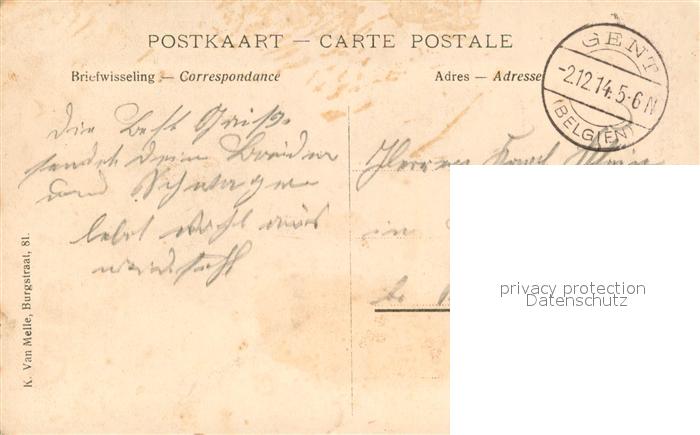 POSTKAART — CARTE POSTALE
Briefwisseling — Correspondance
Adres — Adresse
GENT
-2.12.14. 5-6 N
(BELGIEN)
Die besten Grüße
sendet dein Bruder
und Schwager
lebt wohl aufs
Herrn Karl
in
b.
K. Van Melle, Burgstraat, 81.
privacy protection
Datenschutz